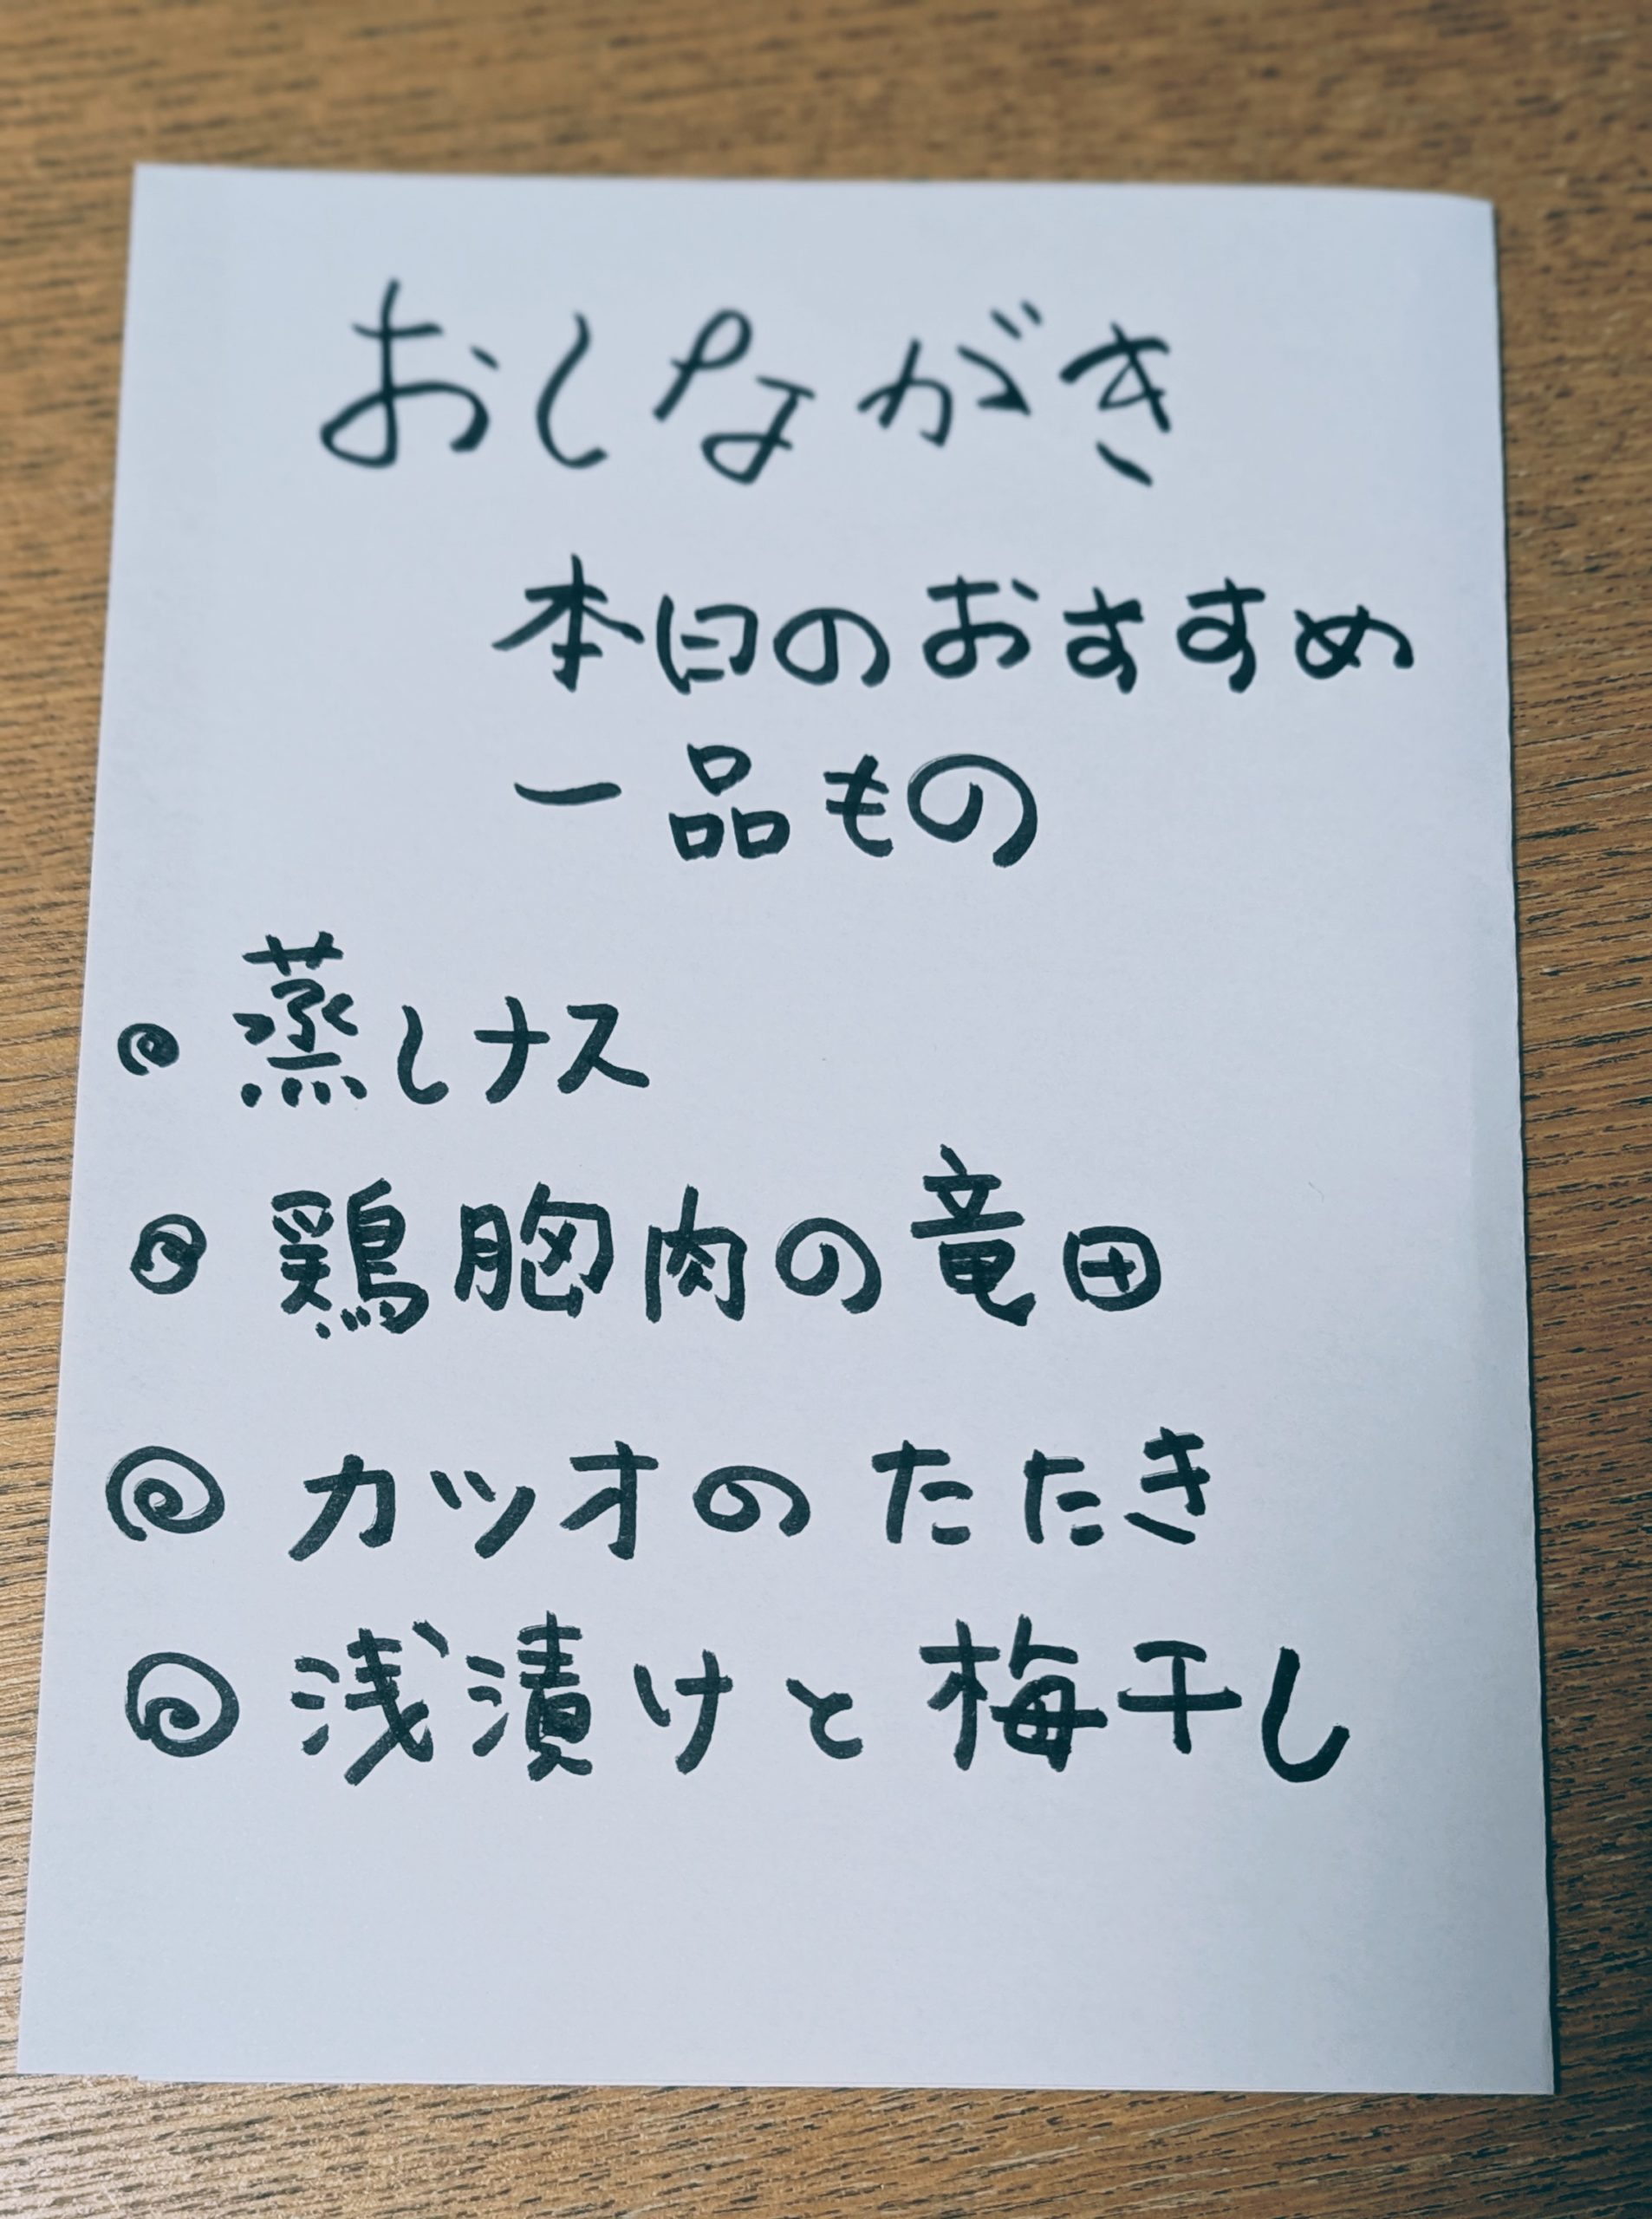 おしながき
本日のおすすめ
一品もの
蒸しナス
鶏胸肉の竜田
カツオのたたき
浅漬けと梅干し